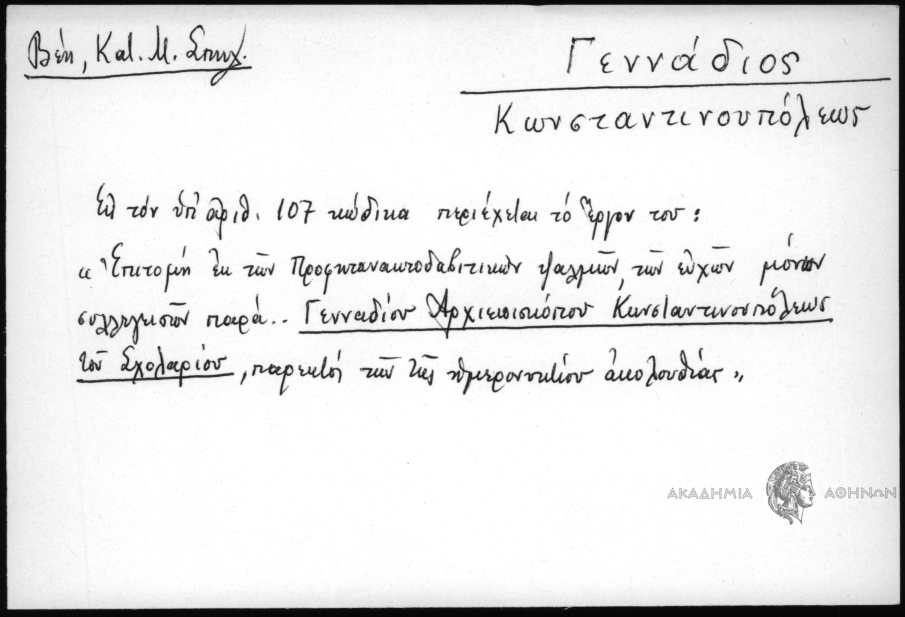 Βέη, Κατ. Μ. Σπηλ.
Γεννάδιος
Κωνσταντινουπόλεως
Εἰς τόν ὑπ' ἀριθ. 107 κώδικα περιέχεται τό ἔργον του:
« Ἐπιτομή ἐκ τῶν Προφητανακτοδαβιτικῶν ψαλμῶν, τῶν εὐχῶν μόνον
συλλεγεισῶν παρά.. Γενναδίου Ἀρχιεπισκόπου Κωνσταντινουπόλεως
τοῦ Σχολαρίου, παρεκτός τῶν τῆς ἡμερονυκτίου ἀκολουθίας »
ΑΚΑΔΗΜΙΑ ΑΘΗΝΩΝ